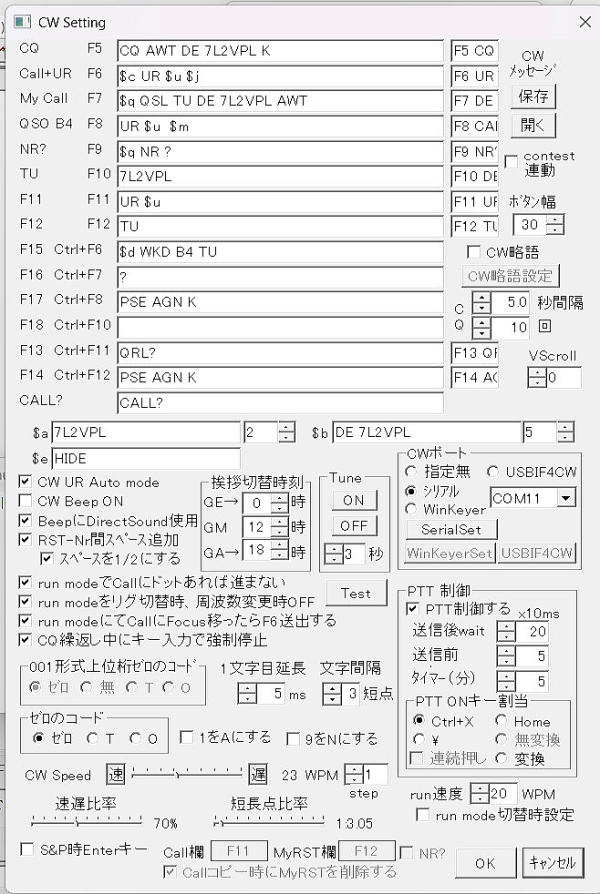 CW Setting
CQ F5 CQ AWT DE 7L2VPL K F5 CQ
CW
ﾒｯｾｰｼﾞ
Call+UR F6 $c UR $u $j F6 UR
My Call F7 $q QSL TU DE 7L2VPL AWT F7 DE 保存
QSO B4 F8 UR $u $m F8 CAI 開く
NR? F9 $q NR ? F9 NR'
contest
連動
TU F10 7L2VPL F10 DE
F11 F11 UR $u F11 UF ﾎﾞﾀﾝ幅
F12 F12 TU F12 TU 30
F15 Ctrl+F6 $d WKD B4 TU CW略語
F16 Ctrl+F7 ? CW略語設定
F17 Ctrl+F8 PSE AGN K C 5.0 秒間隔
F18 Ctrl+F10 Q 10 回
F13 Ctrl+F11 QRL? F13 QF VScroll
F14 Ctrl+F12 PSE AGN K F14 AC 0
CALL? CALL?
$a 7L2VPL 2 $b DE 7L2VPL 5
$e HIDE
CW UR Auto mode
CW Beep ON
BeepにDirectSound使用
RST-Nr間スペース追加
スペースを1/2にする
挨拶切替時刻
GE→ 0 時
GM 12 時
GA→ 18 時
Tune
ON
OFF
3 秒
CWポート
指定無 USBIF4CW
シリアル COM11
WinKeyer
SerialSet
WinKeyerSet USBIF4CW
run modeでCallにドットあれば進まない
run modeをリグ切替時、周波数変更時OFF
run modeにてCallにFocus移ったらF6送出する
CQ繰返し中にキー入力で強制停止
Test
PTT 制御
PTT制御する x10ms
送信後wait 20
送信前 5
ﾀｲﾏｰ(分) 5
PTT ONキー割当
Ctrl+X Home
¥ 無変換
連続押し 変換
001形式上位桁ゼロのコード
ゼロ 無 T O
1文字目延長 文字間隔
5 ms 3 短点
ゼロのコード
ゼロ T O
1をAにする 9をNにする
CW Speed 速 遅 23 WPM 1
step
run速度 20 WPM
run mode切替時設定
速遅比率 短長点比率
70% 1:3.05
S&P時Enterキー Call欄 F11 MyRST欄 F12 NR?
Callコピー時にMyRSTを削除する
OK ｷｬﾝｾﾙ